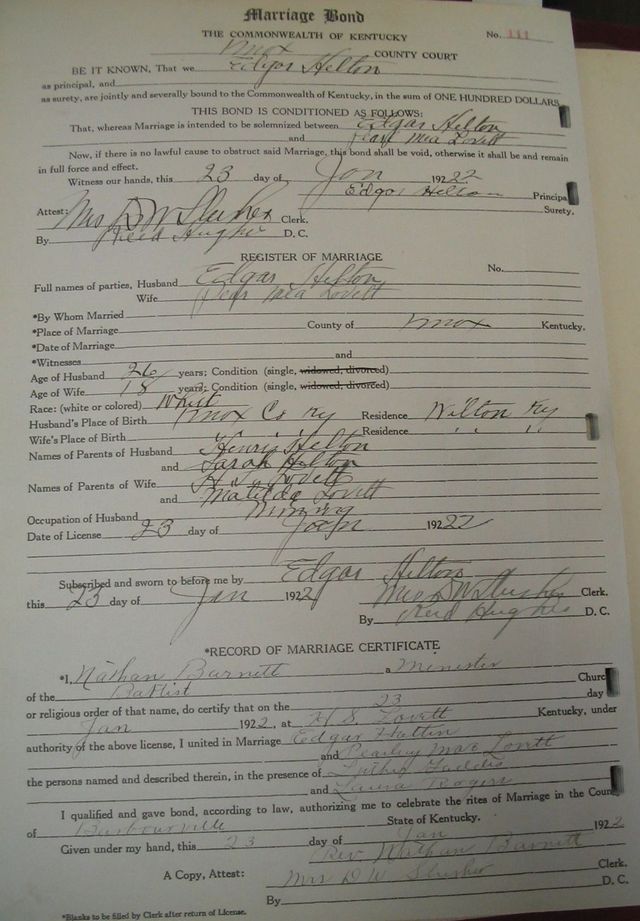 Marriage Bond
THE COMMONWEALTH OF KENTUCKY
No. 111
Knox COUNTY COURT
BE IT KNOWN, That we Edgar Helton
as principal, and
as surety, are jointly and severally bound to the Commonwealth of Kentucky, in the sum of ONE HUNDRED DOLLARS
THIS BOND IS CONDITIONED AS FOLLOWS:
That, whereas Marriage is intended to be solemnized between Edgar Helton
and Mea Lovett
Now, if there is no lawful cause to obstruct said Marriage, this bond shall be void, otherwise it shall be and remain
in full force and effect.
Witness our hands, this 23 day of Jan 192 22
Edgar Helton Principa
Attest: Surety.
Mrs D W Slusher Clerk.
By Reed Hughes D. C.
REGISTER OF MARRIAGE
No.
Full names of parties, Husband Edgar Helton
Wife Mea Lovett
*By Whom Married
*Place of Marriage County of Knox Kentucky.
*Date of Marriage
*Witnesses and
Age of Husband 26 years; Condition (single, widowed, divorced)
Age of Wife 18 years; Condition (single, widowed, divorced)
Race: (white or colored) White
Husband's Place of Birth Knox Co Ky Residence Wilton Ky
Wife's Place of Birth " " Residence " "
Names of Parents of Husband Henry Helton
and Sarah Helton
Names of Parents of Wife H S Lovett
and Matilda Lovett
Occupation of Husband Mining
Date of License 23 day of Jan 192 22
Subscribed and sworn to before me by Edgar Helton
this 23 day of Jan 192 2 Mrs D W Slusher Clerk.
By Reed Hughes D. C.
*RECORD OF MARRIAGE CERTIFICATE
*I, Nathan Burnett a Menester
of the Batlist Churc
or religious order of that name, do certify that on the 23 day
Jan 192 2, at H S Lovett Kentucky, under
authority of the above license, I united in Marriage Edgar Hattin
and Pearley Mae Lovett
the persons named and described therein, in the presence of Luther Gaddis
and Rogers
I qualified and gave bond, according to law, authorizing me to celebrate the rites of Marriage in the Coun
of Barbourville State of Kentucky.
Given under my hand, this 23 day of Jan 192 2
Rev. Nathan Burnett
A Copy, Attest: Mrs D W Slusher Clerk.
By D. C.
*Blanks to be filled by Clerk after return of License.